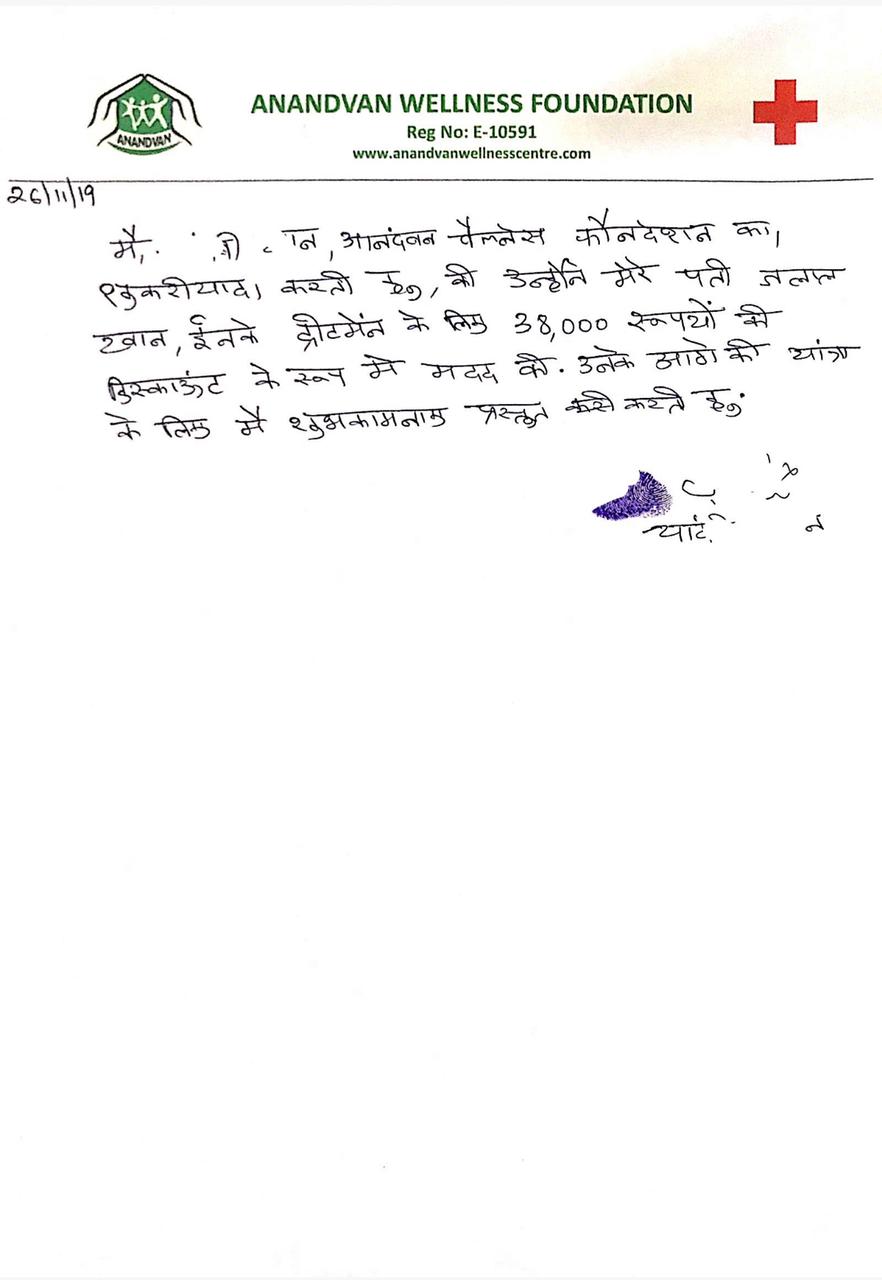 ANANDVAN
ANANDVAN WELLNESS FOUNDATION
Reg No: E-10591
www.anandvanwellnesscentre.com
26/11/19
मै, आनंदवन वैलनेस फौनदेशन का
शुकरीयादा करती हुं, की उन्होंने मेरे पती जलाल
खान, ईनके ट्रीटमेंन के लिए 38,000 रूपयों की
डिस्काऊंट के रूप मे मदद की. उनके आगे की यांत्रा
के लिए मै शुभकामनाए प्रस्तुत करती हुं